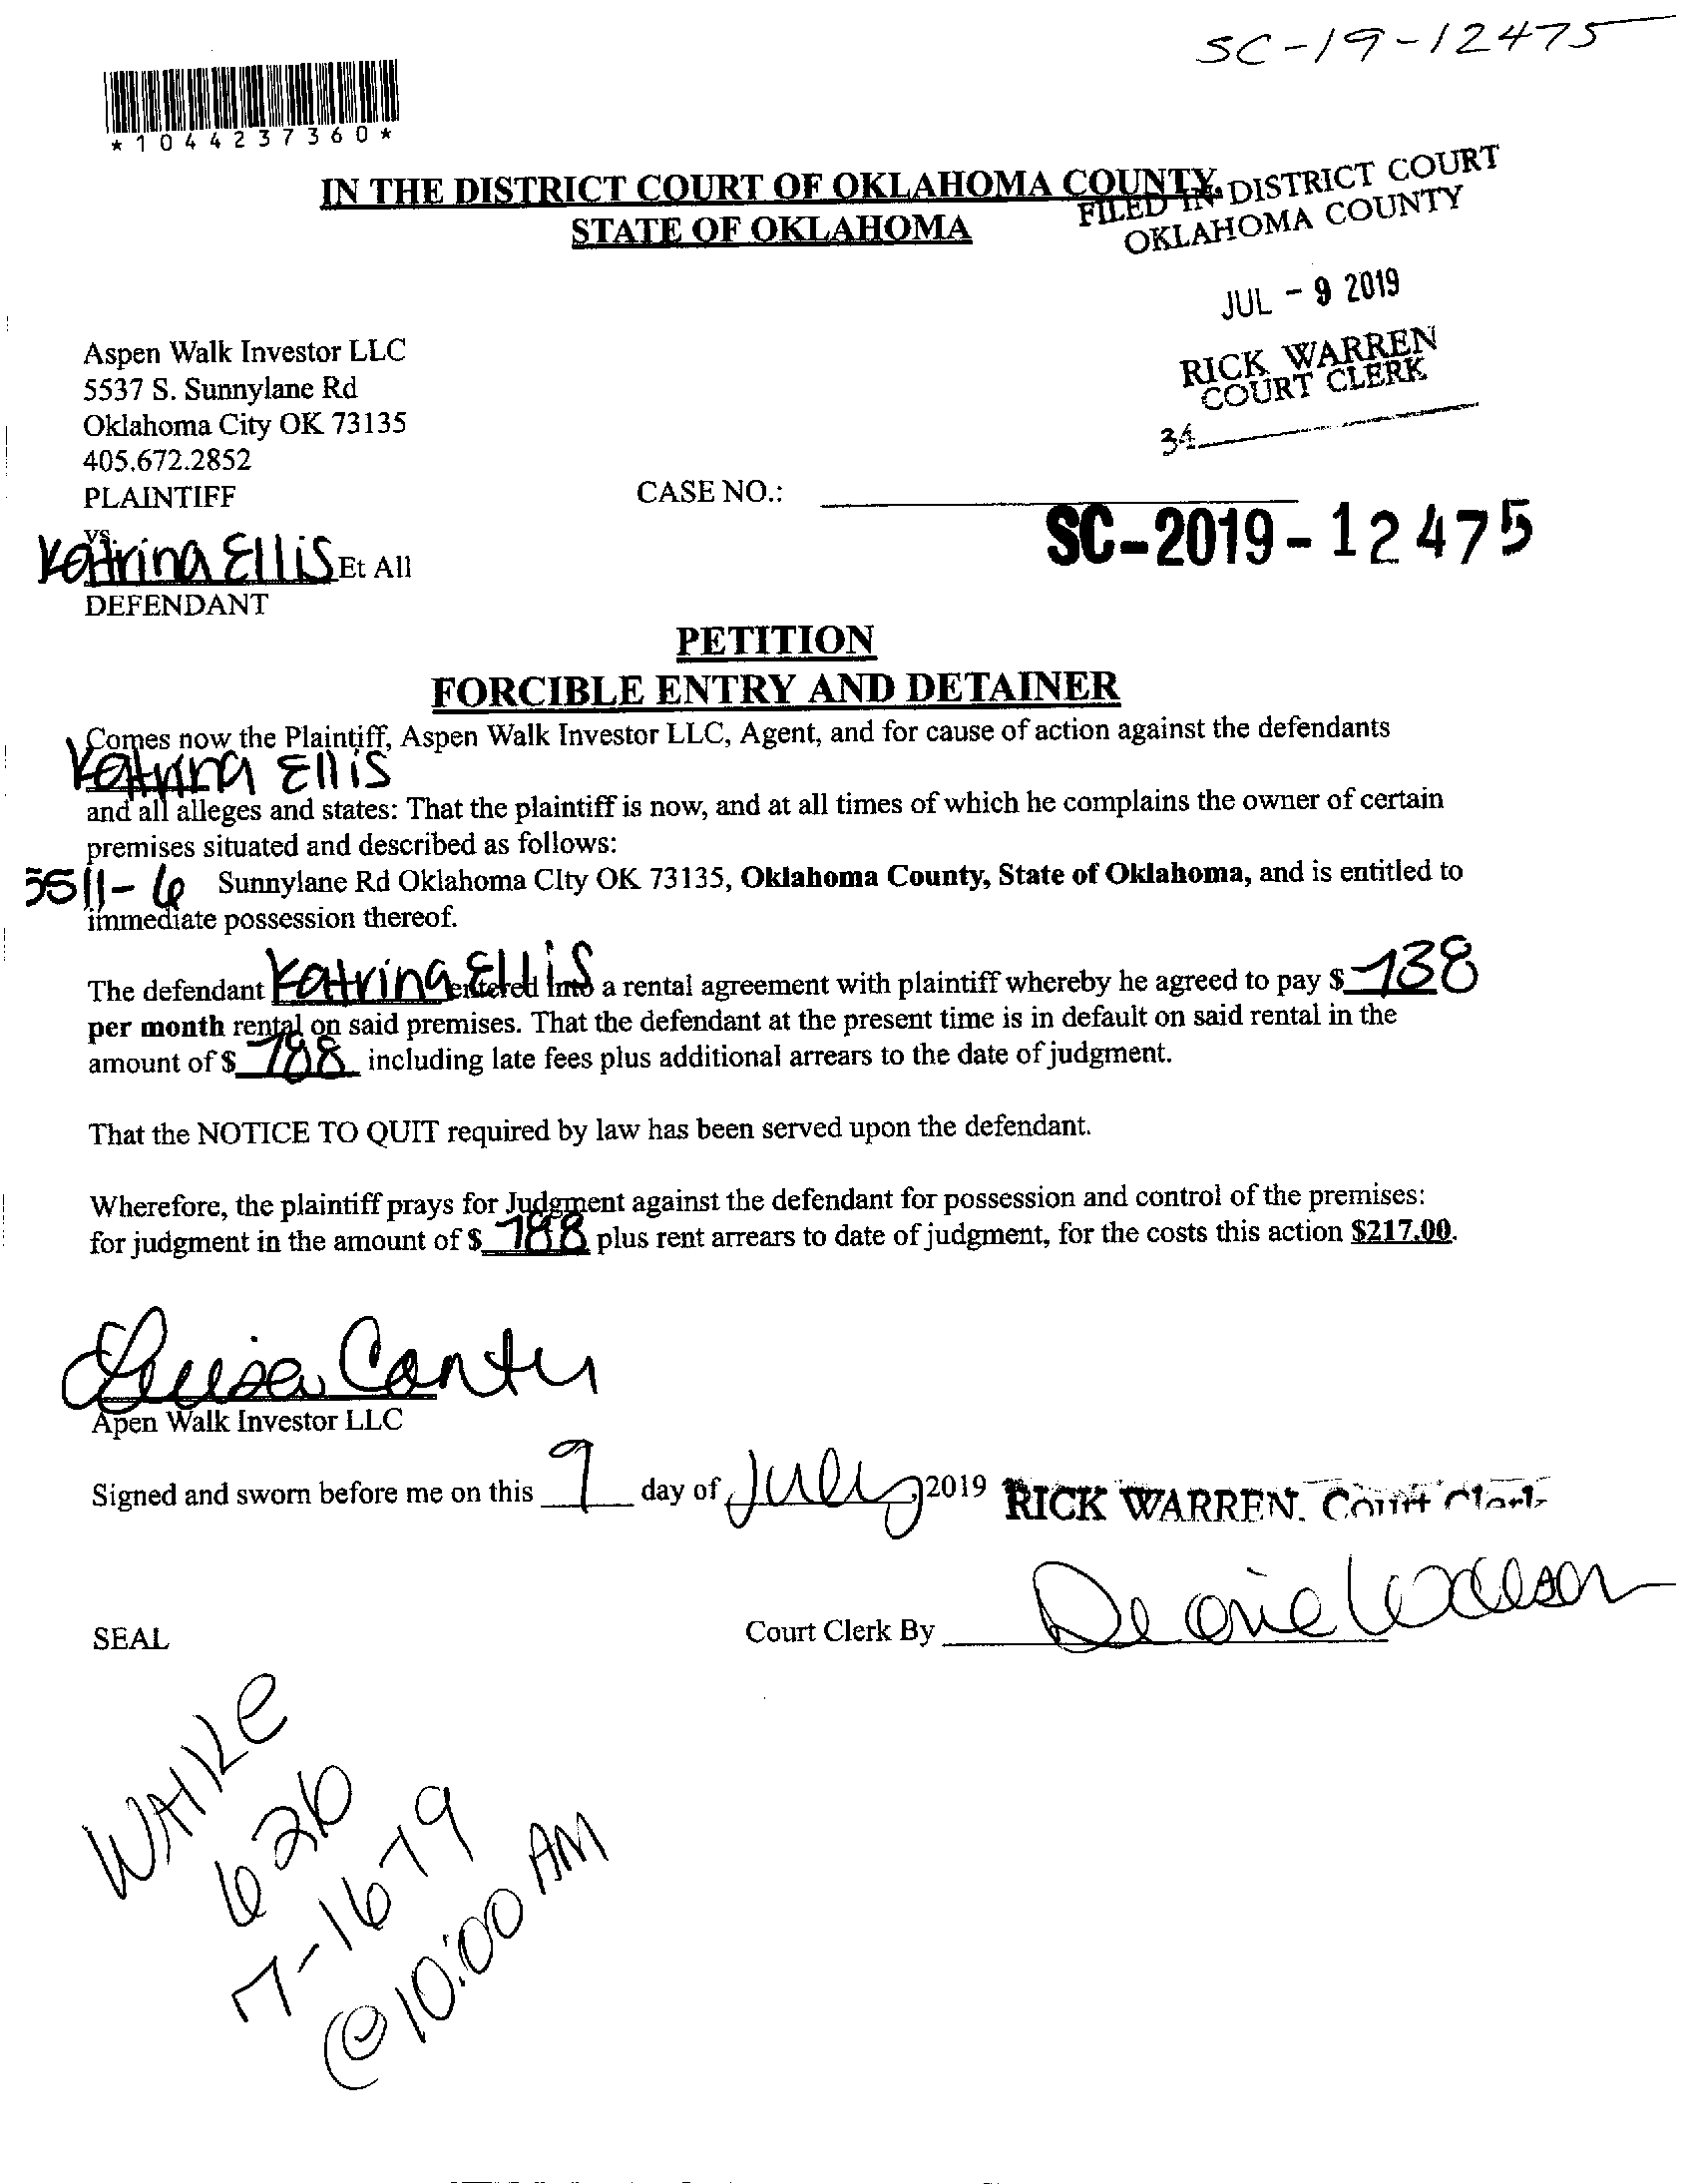 SC-19-12475
*1044237360*
IN THE DISTRICT COURT OF OKLAHOMA COUNTY,
STATE OF OKLAHOMA
FILED IN DISTRICT COURT
OKLAHOMA COUNTY
JUL - 9 2019
RICK WARREN
COURT CLERK
34
Aspen Walk Investor LLC
5537 S. Sunnylane Rd
Oklahoma City OK 73135
405.672.2852
PLAINTIFF
CASE NO.:
SC-2019-12475
vs.
Katrina Ellis Et All
DEFENDANT
PETITION
FORCIBLE ENTRY AND DETAINER
Comes now the Plaintiff, Aspen Walk Investor LLC, Agent, and for cause of action against the defendants
Katrina Ellis
and all alleges and states: That the plaintiff is now, and at all times of which he complains the owner of certain
premises situated and described as follows:
5511-6 Sunnylane Rd Oklahoma CIty OK 73135, Oklahoma County, State of Oklahoma, and is entitled to
immediate possession thereof.
The defendant Katrina Ellis entered into a rental agreement with plaintiff whereby he agreed to pay $ 738
per month rental on said premises. That the defendant at the present time is in default on said rental in the
amount of $ 788 including late fees plus additional arrears to the date of judgment.
That the NOTICE TO QUIT required by law has been served upon the defendant.
Wherefore, the plaintiff prays for Judgment against the defendant for possession and control of the premises:
for judgment in the amount of $ 788 plus rent arrears to date of judgment, for the costs this action $217.00.
Cantu
Apen Walk Investor LLC
Signed and sworn before me on this 9 day of July 2019 RICK WARREN, Court Clerk
SEAL
Court Clerk By
626
7-16-19
@ 10:00 AM